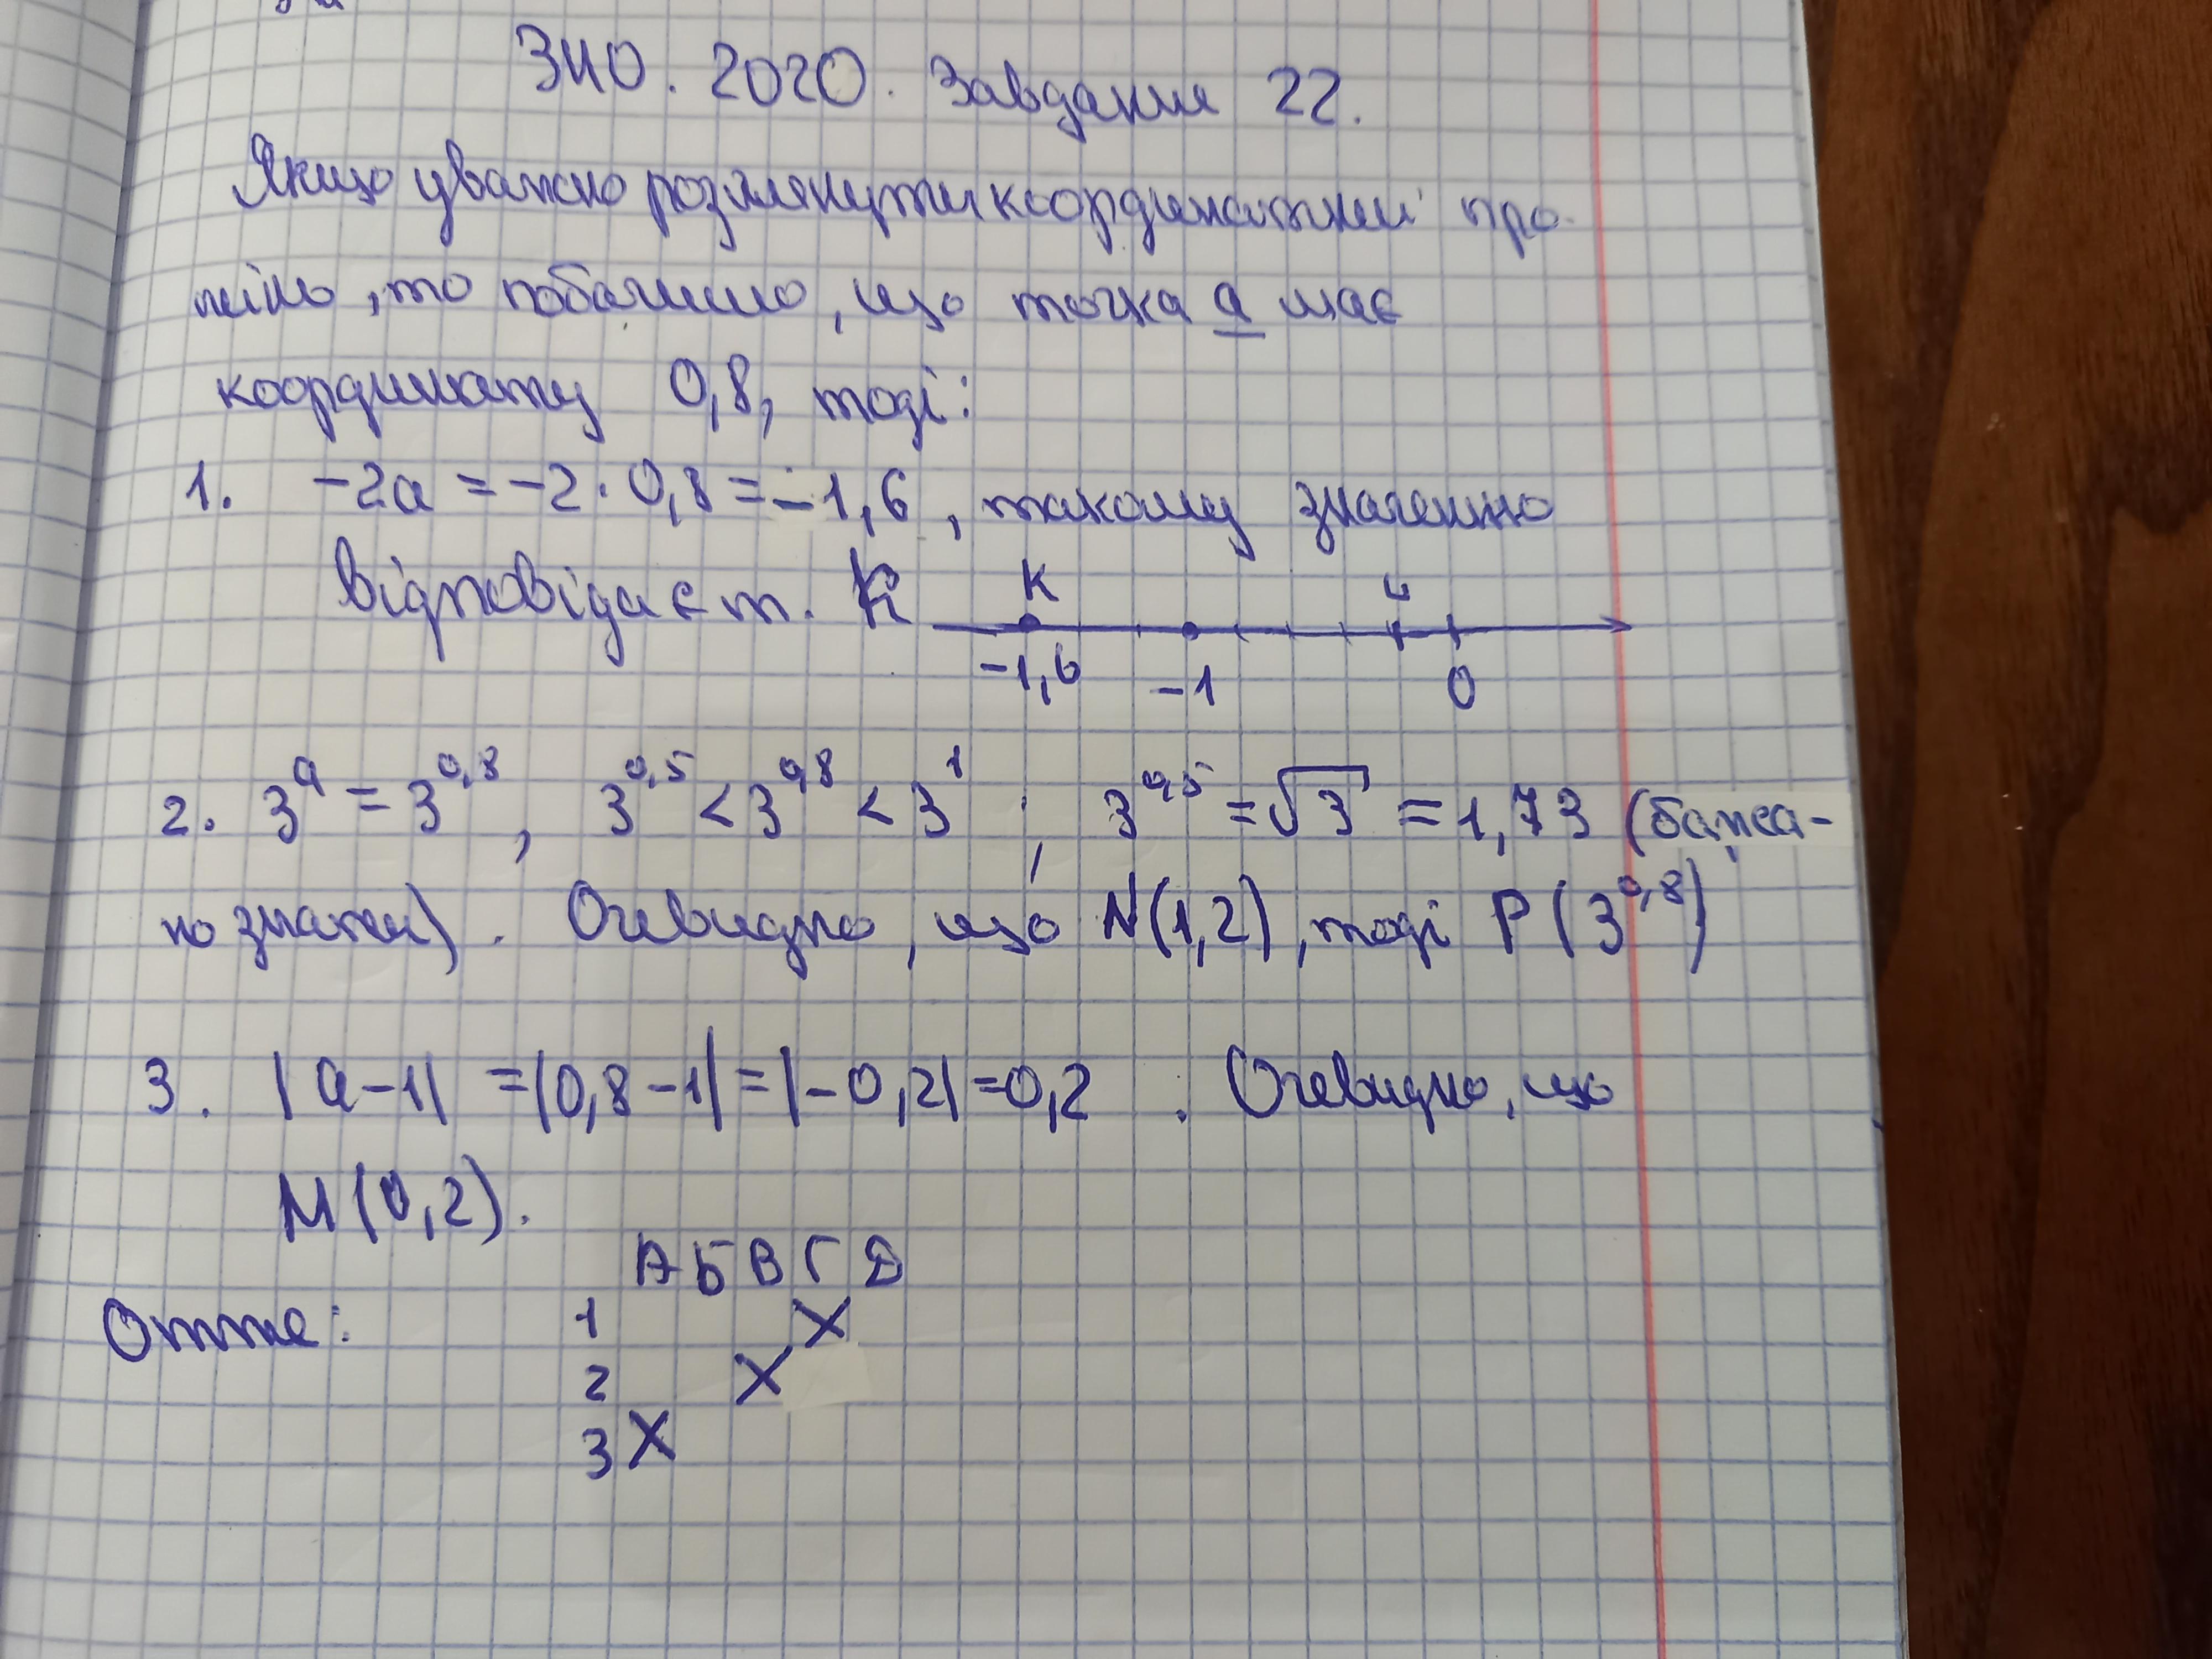 ЗНО. 2020. Завдання 22.
Якщо уважно розглянути координатний про-
мінь, то побачимо, що точка а має
координату 0,8, тоді:
1. -2а = -2 · 0,8 = -1,6, такому значенню
відповідає т. К
К
-1,6 -1 0
2. 3^а = 3^0,8, 3^0,5 < 3^0,8 < 3^1; 3^0,5 = √3 = 1,73 (бажа-
но знати). Очевидно, що N(1,2), тоді P(3^0,8)
3. |а-1| = |0,8-1| = |-0,2| = 0,2. Очевидно, що
М(0,2).
А Б В Г Д
Отже: 1 X
2 X
3 X